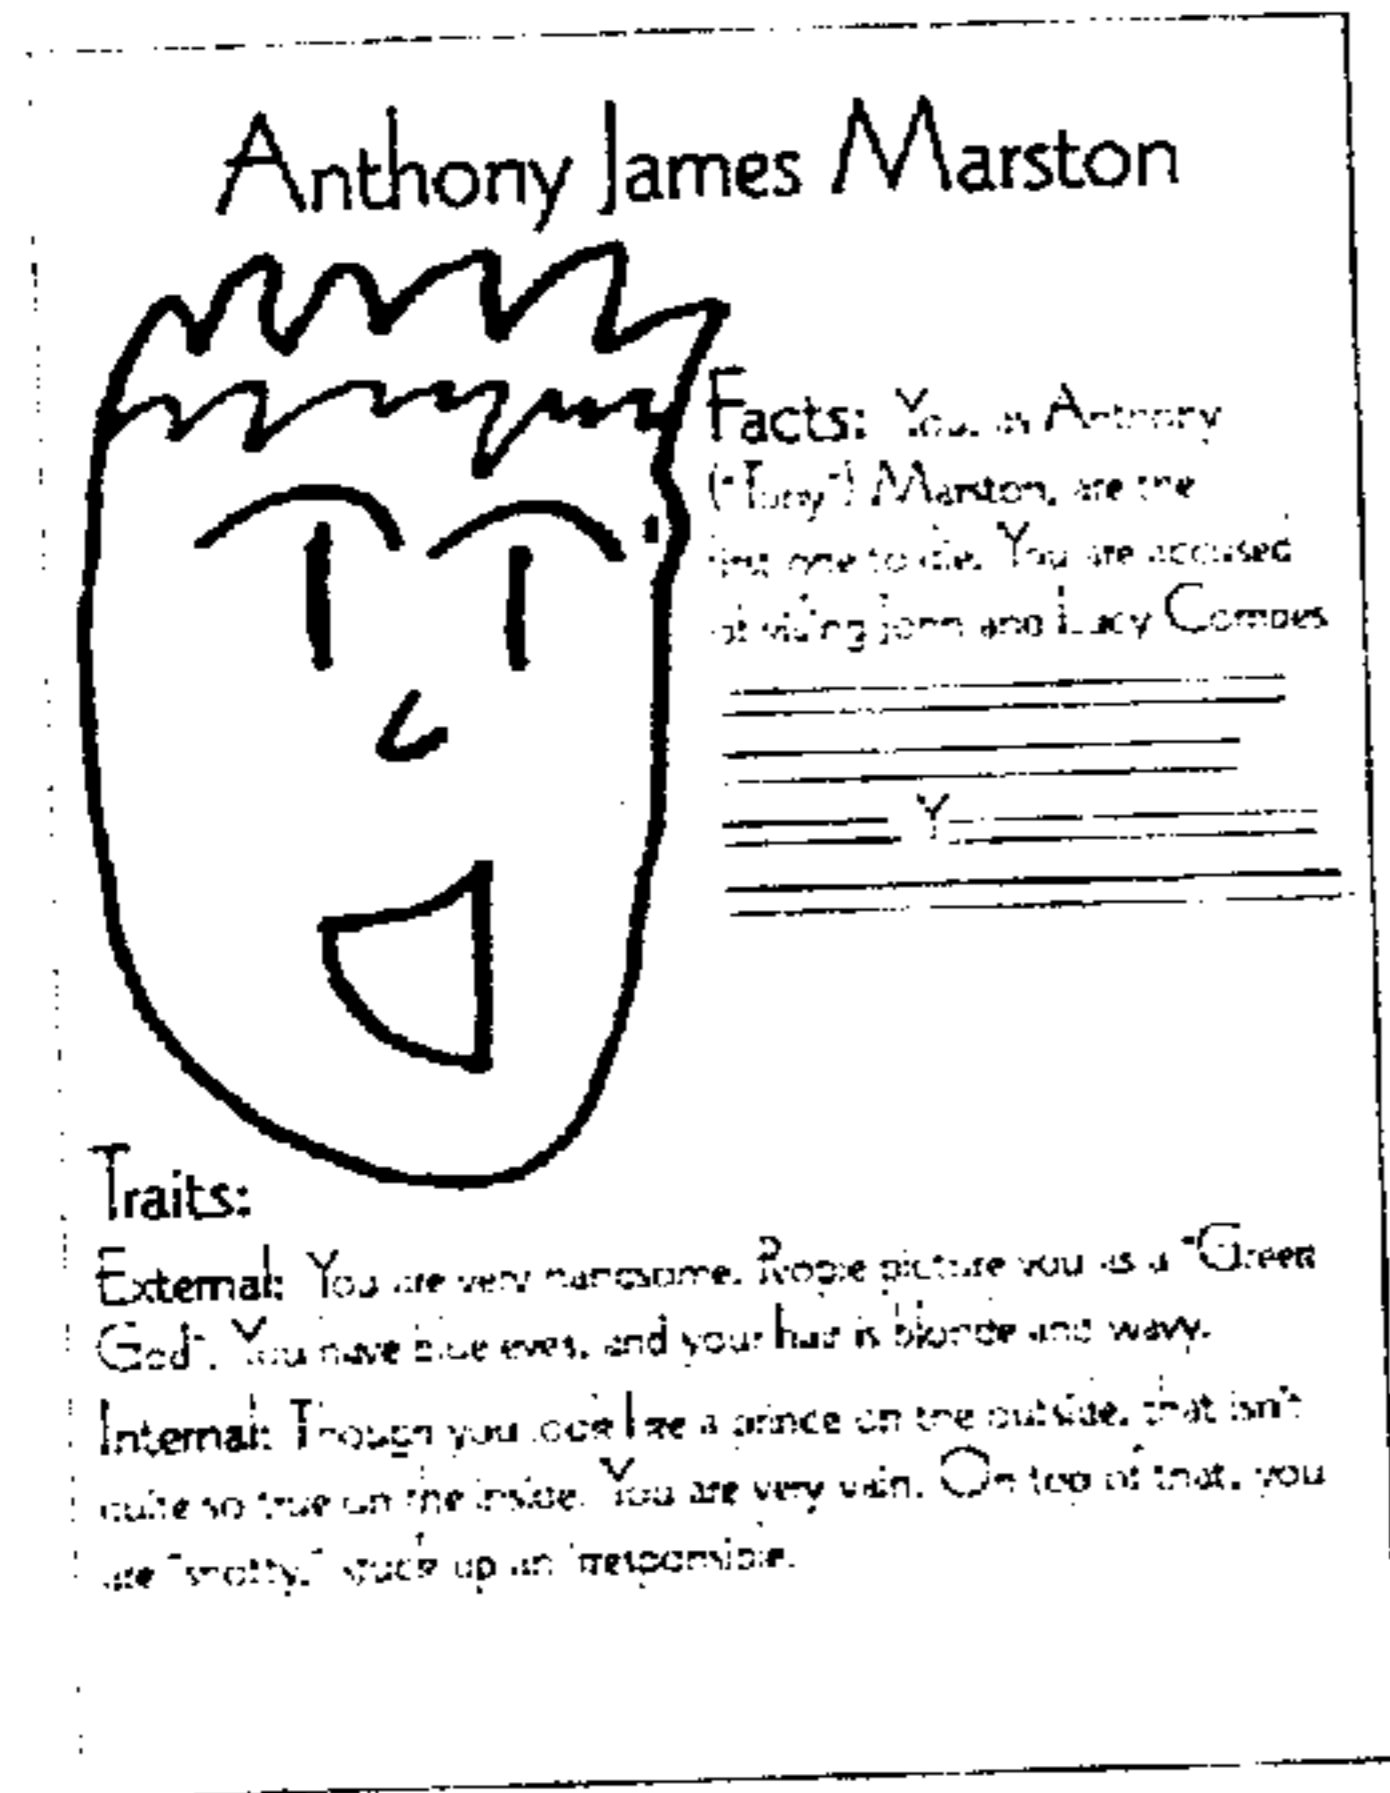 Anthony James Marston
Facts: You, as Anthony
("Tony") Marston, are the
first one to die. You are accused
of killing John and Lucy Combes
Y
Traits:
External: You are very handsome. People picture you as a "Green
God". You have blue eyes, and your hair is blonde and wavy.
Internal: Though you look like a prince on the outside, that isn't
quite so true on the inside. You are very vain. On top of that, you
are "snotty," stuck up an irresponsible.